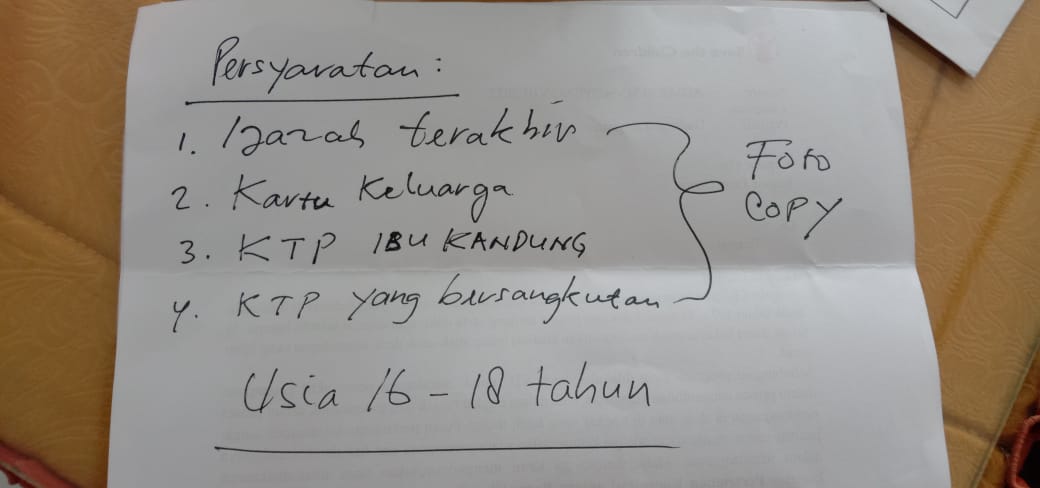 Persyaratan :
1. Ijazah terakhir
2. Kartu Keluarga
3. KTP IBU KANDUNG
4. KTP yang bersangkutan
FOTO
COPY
Usia 16 - 18 tahun